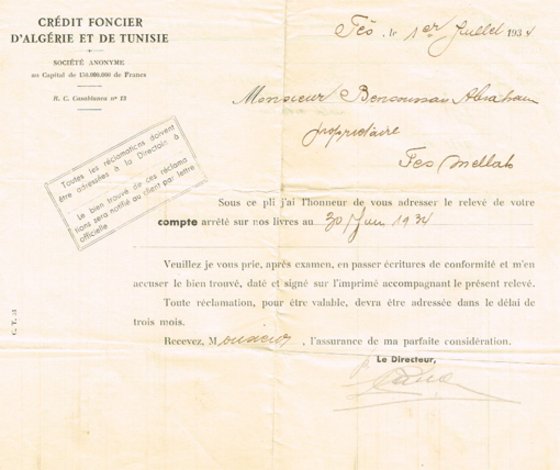 CRÉDIT FONCIER
D'ALGÉRIE ET DE TUNISIE
SOCIÉTÉ ANONYME
au Capital de 150.000.000 de Francs
R. C. Casablanca nº 13
Fès, le 1er Juillet 1934
Monsieur Bensoussan Abraham
propriétaire
Fès Mellah
Toutes les réclamations doivent
être adressées à la Direction à
Le bien trouvé de ces réclama
tions sera notifié au client par lettre
officielle
Sous ce pli j'ai l'honneur de vous adresser le relevé de votre
compte arrêté sur nos livres au 30 Juin 1934
Veuillez je vous prie, après examen, en passer écritures de conformité et m'en
accuser le bien trouvé, daté et signé sur l'imprimé accompagnant le présent relevé.
Toute réclamation, pour être valable, devra être adressée dans le délai de
trois mois.
Recevez, Monsieur, l'assurance de ma parfaite considération.
Le Directeur,